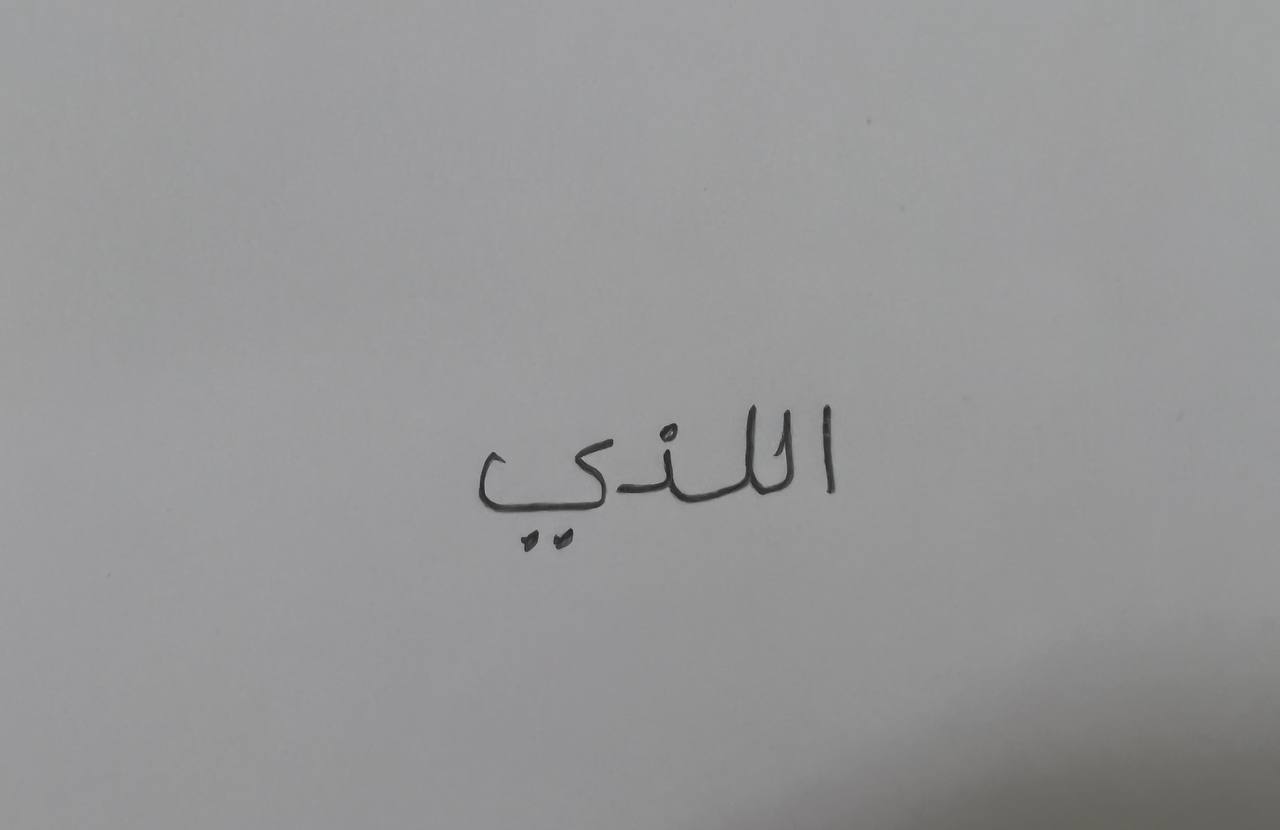 اللذي